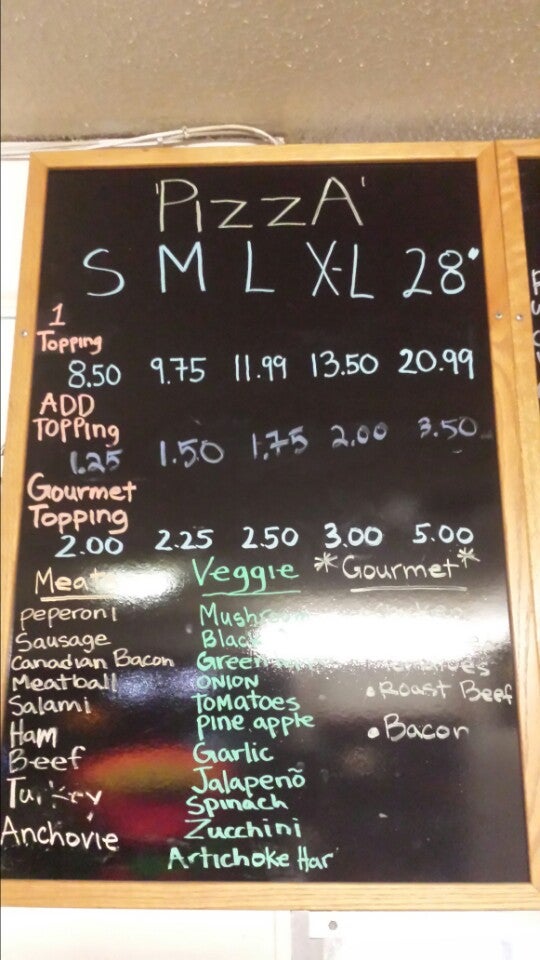 'PizzA'
S M L X-L 28"
1
Topping
8.50 9.75 11.99 13.50 20.99
ADD
TOPPing
1.25 1.50 1.75 2.00 3.50
Gourmet
Topping
2.00 2.25 2.50 3.00 5.00
Meat Veggie *Gourmet*
peperoni
Sausage
Canadian Bacon
Meatball
Salami
Ham
Beef
Turkey
Anchovie
Mushroom
Black
Green
ONION
Tomatoes
pine apple
Garlic
Jalapenõ
Spinach
Zucchini
Artichoke Har
• Roast Beef
• Bacon